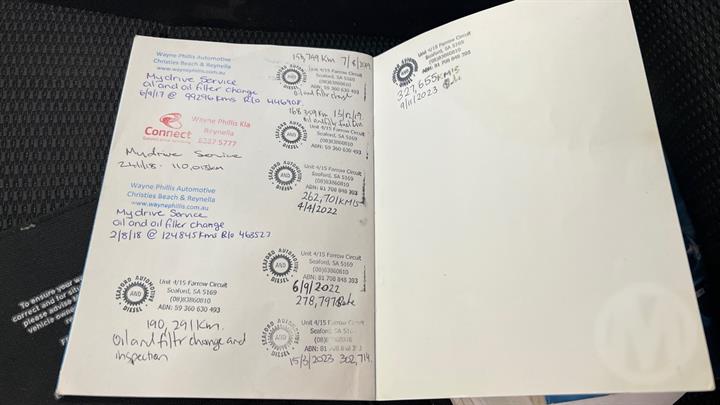 Wayne Phillis Automotive
Christies Beach & Reynella
www.waynephillis.com.au
Mydrive Service
oil and oil filter change
6/9/17 @ 99296 kms R/o 446908
Connect
Wayne Phillis Kia
Reynella
8327 5777
Mydrive Service
24/1/18 - 110,013km
Wayne Phillis Automotive
Christies Beach & Reynella
www.waynephillis.com.au
Mydrive Service
oil and oil filter change
2/8/18 @ 124845 kms R/o 463527
SEAFORD AUTOMOTIVE
AND
DIESEL
Unit 4/15 Farrow Circuit
Seaford, SA 5169
(08)83860810
ABN: 59 360 630 493
190,291 Km.
Oil and filtr change and
inspection
153,799 Km 7/6/2019
SEAFORD AUTOMOTIVE
AND
DIESEL
Unit 4/15 Farrow Circuit
Seaford, SA 5169
(08)83860810
ABN: 59 360 630 493
oil and filtr change
168,309 Km 13/12/19.
oil and filtr
SEAFORD AUTOMOTIVE
AND
DIESEL
Unit 4/15 Farrow Circuit
Seaford, SA 5169
(08)83860810
ABN: 59 360 630 493
SEAFORD AUTOMOTIVE
AND
DIESEL
Unit 4/15 Farrow Circuit
Seaford, SA 5169
(08)83860810
ABN: 81 708 848 393
262,701 KMS
4/4/2022
SEAFORD AUTOMOTIVE
AND
DIESEL
Unit 4/15 Farrow Circuit
Seaford, SA 5169
(08)83860810
ABN: 81 708 848 393
6/9/2022
278,797
SEAFORD AUTOMOTIVE
AND
DIESEL
Unit 4/15 Farrow Circuit
Seaford, SA 5169
(08)83860810
ABN: 81
15/3/2023 302,714
SEAFORD AUTOMOTIVE
AND
DIESEL
Unit 4/15 Farrow Circuit
Seaford, SA 5169
(08)83860810
ABN: 81 708 848 393
327,655 KMS
9/11/2023
To ensure your
correct and for
please advise
vehicle
M